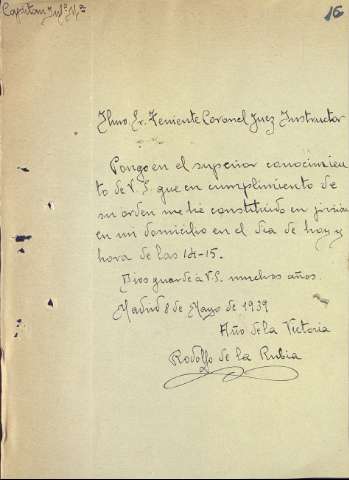 Capitan Inf.ª M.ª
16
Ilmo. Sr. Teniente Coronel Juez Instructor
Pongo en el superior conocimien
to de V.S. que en cumplimiento de
su orden me he constituido en prisión
en mi domicilio en el dia de hoy y
hora de las 14-15.
Dios guarde á V.S. muchos años.
Madrid 8 de Mayo de 1939
Año de la Victoria
Rodolfo de la Rubia